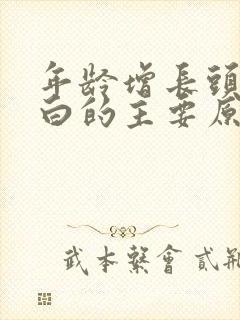 年龄增長頭
白的主要原
武本繫會貳航